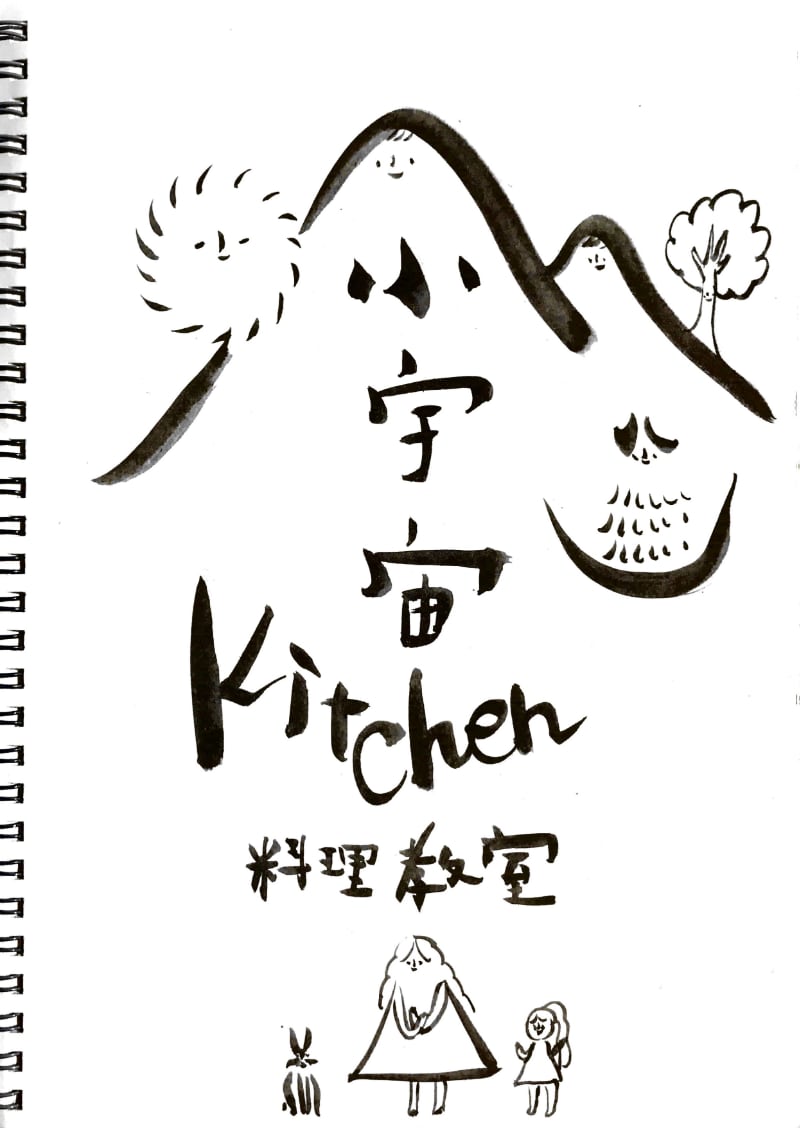 小宇宙
Kitchen
料理教室